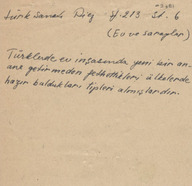 Türk Sanatı Diez S. 213 St. 6
(Ev ve sarayları)
Türklerde ev inşasında yeni bir an-
ane getirmeden fethettikleri ülkelerde
hazır buldukları tipleri almışlardır.